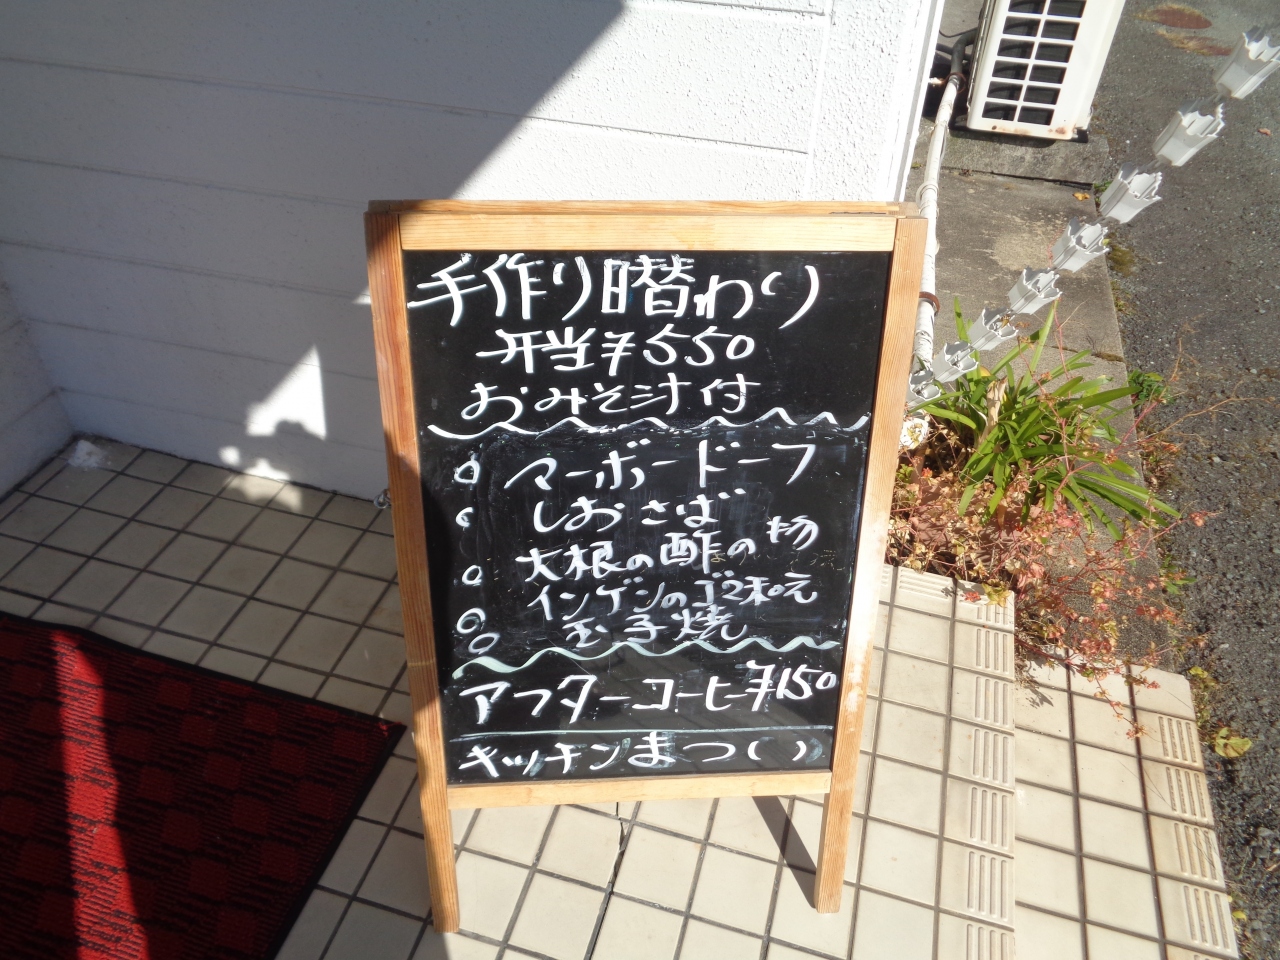 手作り日替わり
弁当¥550
おみそ汁付
○マーボードーフ
○しおさば
○大根の酢の物
○インゲンのゴマ和え
○玉子焼
アフターコーヒー¥150
キッチンまつい